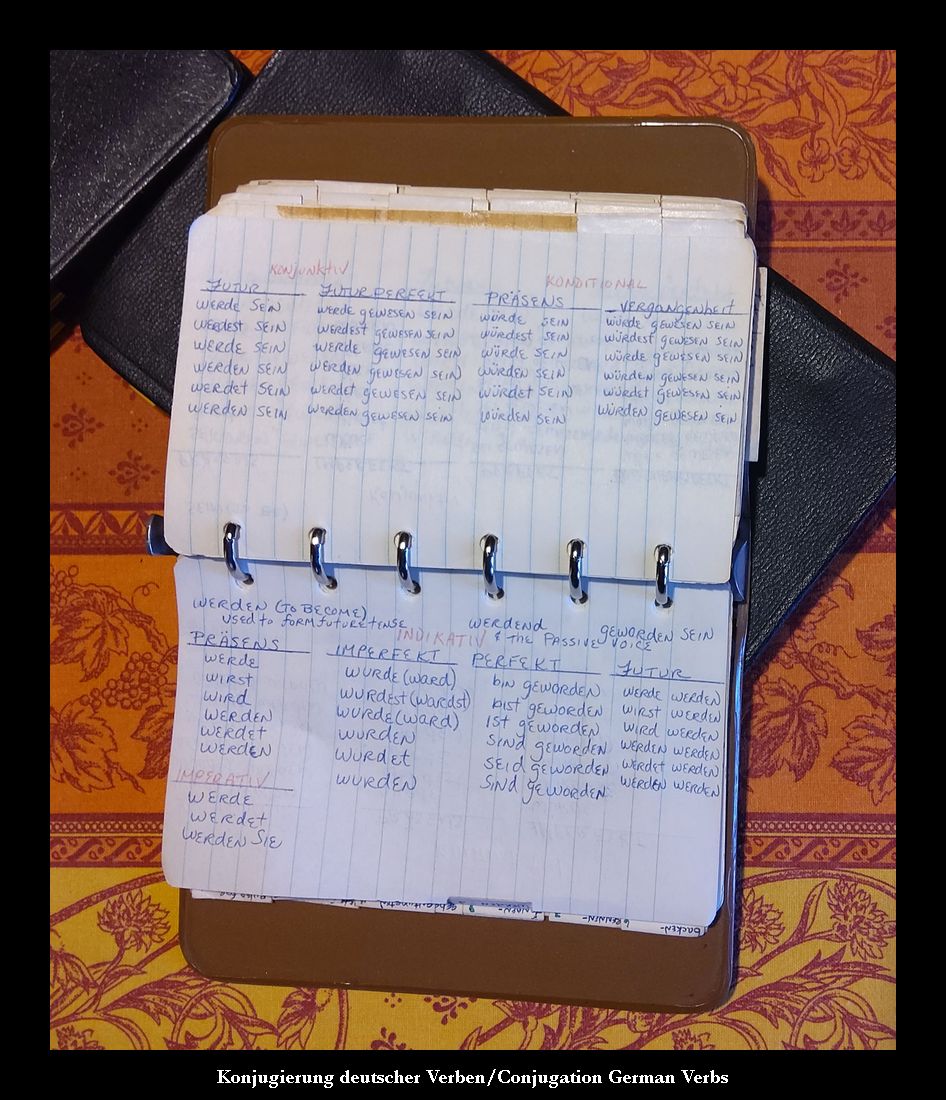 KONJUNKTIV KONDITIONAL
FUTUR FUTUR PERFEKT PRÄSENS VERGANGENHEIT
WERDE SEIN WERDE GEWESEN SEIN WÜRDE SEIN WÜRDE GEWESEN SEIN
WERDEST SEIN WERDEST GEWESEN SEIN WÜRDEST SEIN WÜRDEST GEWESEN SEIN
WERDE SEIN WERDE GEWESEN SEIN WÜRDE SEIN WÜRDE GEWESEN SEIN
WERDEN SEIN WERDEN GEWESEN SEIN WÜRDEN SEIN WÜRDEN GEWESEN SEIN
WERDET SEIN WERDET GEWESEN SEIN WÜRDET SEIN WÜRDET GEWESEN SEIN
WERDEN SEIN WERDEN GEWESEN SEIN WÜRDEN SEIN WÜRDEN GEWESEN SEIN
WERDEN (TO BECOME) WERDEND GEWORDEN SEIN
USED to FORM FUTURE TENSE & the PASSIVE VOICE
INDIKATIV
PRÄSENS IMPERFEKT PERFEKT FUTUR
WERDE WURDE (WARD) BIN GEWORDEN WERDE WERDEN
WIRST WURDEST (WARDST) BIST GEWORDEN WIRST WERDEN
WIRD WURDE (WARD) IST GEWORDEN WIRD WERDEN
WERDEN WURDEN SIND GEWORDEN WERDEN WERDEN
WERDET WURDET SEID GEWORDEN WERDET WERDEN
WERDEN WURDEN SIND GEWORDEN WERDEN WERDEN
IMPERATIV
WERDE
WERDET
WERDEN SIE
backen-
Konjugierung deutscher Verben/Conjugation German Verbs